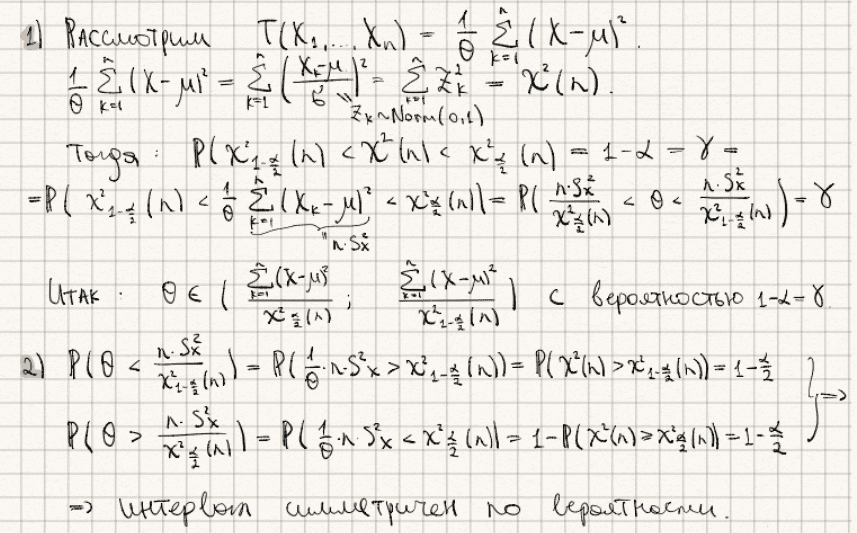 1) Рассмотрим T(X₁,... Xₙ) = 1/θ ∑ₖ₌₁ⁿ (X-μ)².
1/θ ∑ₖ₌₁ⁿ (X-μ)² = ∑ₖ₌₁ⁿ ((Xₖ-μ)/σ)² = ∑ₖ₌₁ⁿ Zₖ² = χ²(n).
Zₖ~Norm(0,1)
Тогда: P(χ²_{1-α/2}(n) < χ²(n) < χ²_{α/2}(n) = 1-α = γ =
= P( χ²_{1-α/2}(n) < 1/θ ∑ₖ₌₁ⁿ (Xₖ-μ)² < χ²_{α/2}(n)) = P( n·Sx²/χ²_{α/2}(n) < θ < n·Sx²/χ²_{1-α/2}(n) ) = γ
n·Sx²
Итак: θ ∈ ( ∑ₖ₌₁ⁿ (X-μ)²/χ²_{α/2}(n) ; ∑ₖ₌₁ⁿ (X-μ)²/χ²_{1-α/2}(n) ) с вероятностью 1-α=γ.
2) P(θ < n·Sx²/χ²_{1-α/2}(n)) = P(1/θ·n·S²x > χ²_{1-α/2}(n)) = P(χ²(n) > χ²_{1-α/2}(n)) = 1-α/2
P(θ > n·Sx²/χ²_{α/2}(n)) = P(1/θ·n·S²x < χ²_{α/2}(n)) = 1-P(χ²(n) ≥ χ²_{α/2}(n)) = 1-α/2 =>
=> интервал симметричен по вероятности.